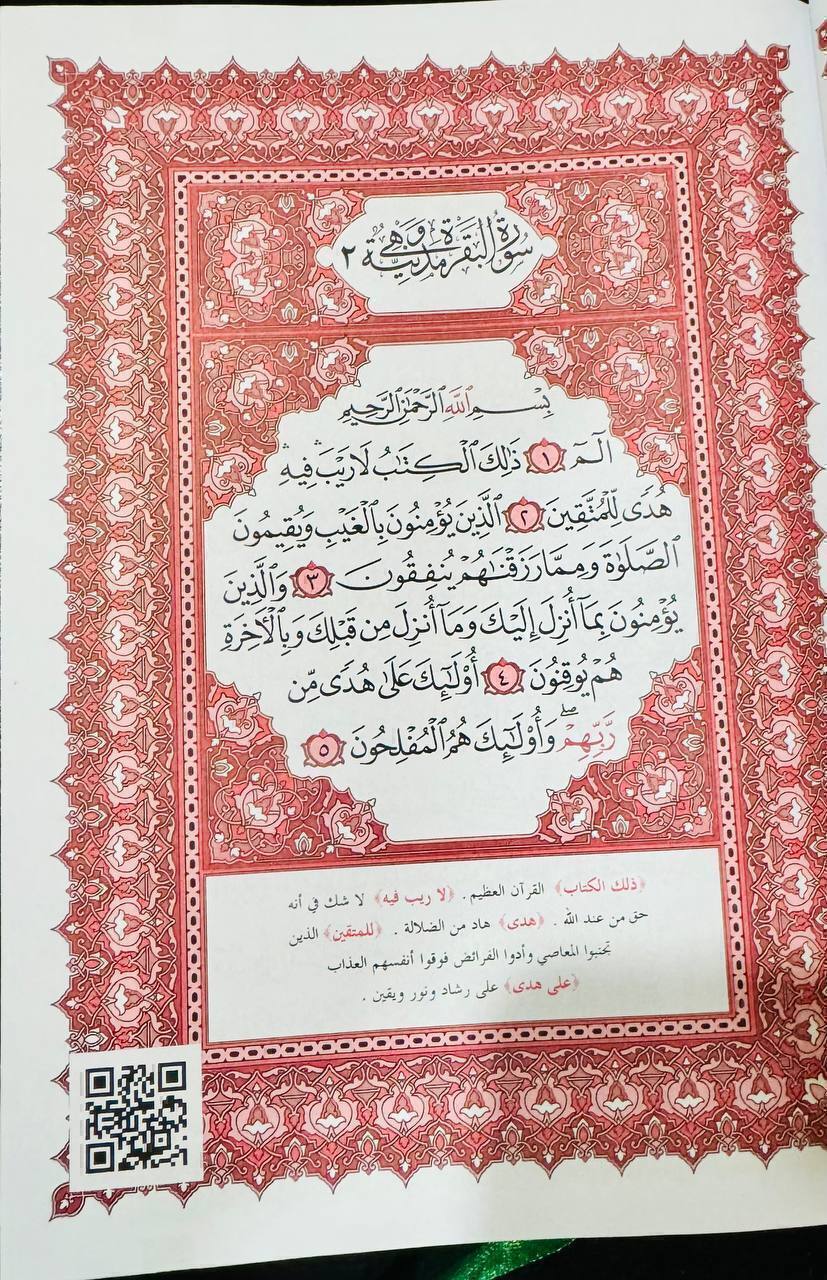 سُورَةُ الْبَقَرَةِ وَهِيَ مَدَنِيَّةٌ ٢
بِسْمِ ٱللَّهِ ٱلرَّحْمَٰنِ ٱلرَّحِيمِ
الٓمٓ ١ ذَٰلِكَ ٱلْكِتَٰبُ لَا رَيْبَ ۛ فِيهِ ۛ
هُدًى لِّلْمُتَّقِينَ ٢ ٱلَّذِينَ يُؤْمِنُونَ بِٱلْغَيْبِ وَيُقِيمُونَ
ٱلصَّلَوٰةَ وَمِمَّا رَزَقْنَٰهُمْ يُنفِقُونَ ٣ وَٱلَّذِينَ
يُؤْمِنُونَ بِمَآ أُنزِلَ إِلَيْكَ وَمَآ أُنزِلَ مِن قَبْلِكَ وَبِٱلْأَخِرَةِ
هُمْ يُوقِنُونَ ٤ أُوْلَٰٓئِكَ عَلَىٰ هُدًى مِّن
رَّبِّهِمْ ۖ وَأُوْلَٰٓئِكَ هُمُ ٱلْمُفْلِحُونَ ٥
﴿ذلك الكتاب﴾ القرآن العظيم . ﴿لا ريب فيه﴾ لا شك في أنه
حق من عند الله . ﴿هدى﴾ هاد من الضلالة . ﴿للمتقين﴾ الذين
تجنبوا المعاصي وأدوا الفرائض فوقوا أنفسهم العذاب
﴿على هدى﴾ على رشاد ونور ويقين .